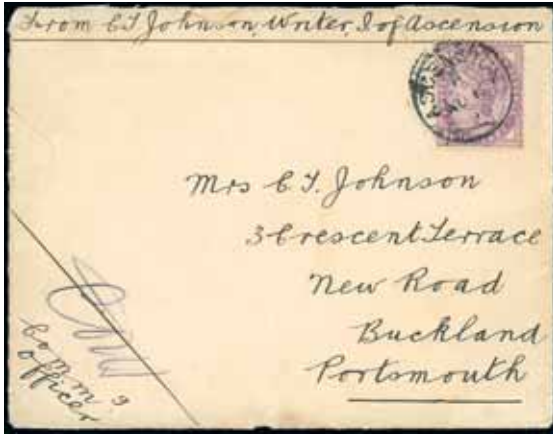 From C.T. Johnson, Writer, I. of Ascension
ASCENSION
Mrs C.T. Johnson
3 Crescent Terrace
New Road
Buckland
Portsmouth
Comm.g
Officer